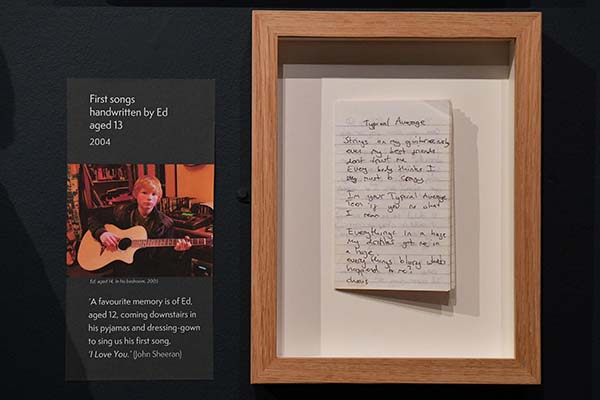 First songs
handwritten by Ed
aged 13
2004
Ed, aged 14, in his bedroom, 2005
‘A favourite memory is of Ed,
aged 12, coming downstairs in
his pyjamas and dressing-gown
to sing us his first song,
‘I Love You.’ (John Sheeran)
Typical Average
Strings on my
my best friends
dont trust me
Every body thinks I
must b crazy
I'm your Typical Average
Teen if you no what
I mean
Everythings in a haze
My got me in
a
everythings blurry whats
happend to me?